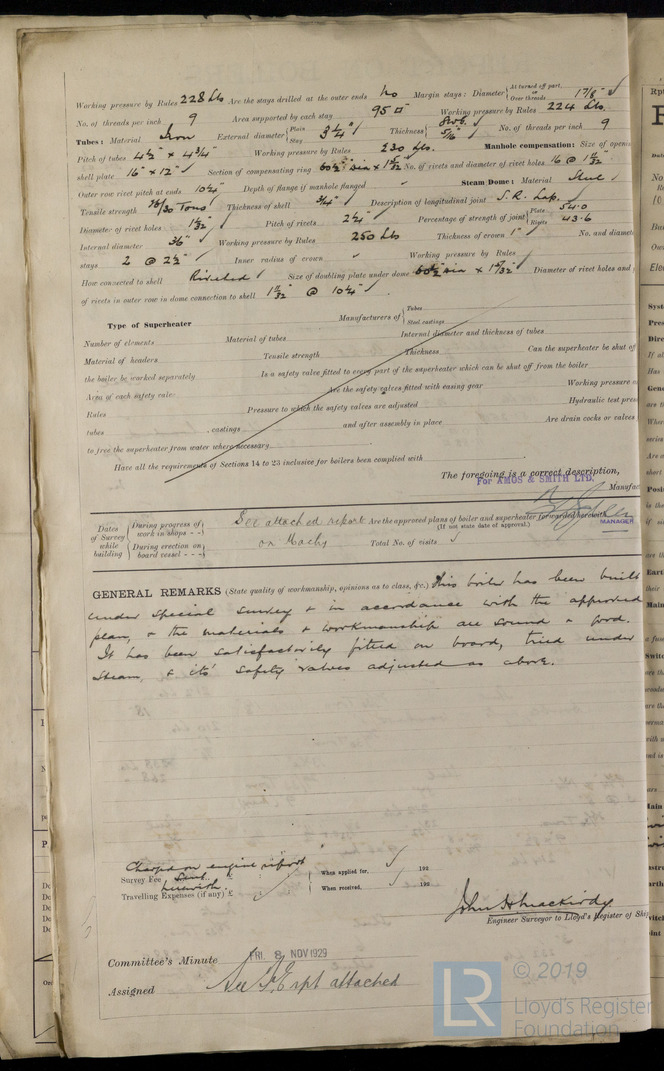 Working pressure by Rules 228 Lbs Are the stays drilled at the outer ends No Margin stays: Diameter { At turned off part or Over threads 1 7/8" ✓
No. of threads per inch 9 Area supported by each stay 95 □" Working pressure by Rules 224 Lbs.
Tubes: Material Iron External diameter { Plain Stay 3 1/4" ✓ Thickness { 8WG. 5/16" ✓ No. of threads per inch 9
Pitch of tubes 4 1/2" × 4 3/4" Working pressure by Rules 230 Lbs. Manhole compensation: Size of openin
shell plate 16" × 12" ✓ Section of compensating ring No. of rivets and diameter of rivet holes 16 @ 1 1/32"
Outer row rivet pitch at ends 10 1/4" Depth of flange if manhole flanged ✓ Steam Dome: Material Steel ✓
Tensile strength 26/30 Tons Thickness of shell 3/4" ✓ Description of longitudinal joint S.R. Lap.
Diameter of rivet holes 1 1/32" Pitch of rivets 2 1/4" Percentage of strength of joint { Plate 54.0 Rivets 43.6
Internal diameter 36" ✓ Working pressure by Rules 250 Lbs Thickness of crown 1" ✓ No. and diamete
stays 2 @ 2 1/2" ✓ Inner radius of crown ✓ Working pressure by Rules
How connected to shell Rivetted Size of doubling plate under dome Diameter of rivet holes and
of rivets in outer row in dome connection to shell 1 11/32" @ 10 1/4" ✓
Type of Superheater Manufacturers of { Tubes Steel castings
Number of elements Material of tubes Internal diameter and thickness of tubes
Material of headers Tensile strength Thickness Can the superheater be shut of
the boiler be worked separately Is a safety valve fitted to every part of the superheater which can be shut off from the boiler
Area of each safety valve Are the safety valves fitted with easing gear Working pressure a
Rules Pressure to which the safety valves are adjusted Hydraulic test pres
tubes , castings and after assembly in place Are drain cocks or valves
to free the superheater from water where necessary
Have all the requirements of Sections 14 to 23 inclusive for boilers been complied with
The foregoing is a correct description,
For AMOS & SMITH LTD. Manufac
MANAGER
Dates of Survey while building { During progress of work in shops - - } See attached report Are the approved plans of boiler and superheater forwarded herewith
(If not state date of approval.)
{ During erection on board vessel - - - } on Machy Total No. of visits ✓
GENERAL REMARKS (State quality of workmanship, opinions as to class, &c.) This boiler has been built
under special survey & in accordance with the approved
plan, & the materials & workmanship are sound & good.
It has been satisfactorily fitted on board, tried under
steam, & its' safety valves adjusted as above.
Charged on engine report
Survey Fee £ When applied for, 192
herewith.
Travelling Expenses (if any) £ When received, 192
John H Mackirdy
Engineer Surveyor to Lloyd's Register of Ship
Committee's Minute FRI. 8 NOV 1929
Assigned See F.E. rpt attached
LR © 2019
Lloyd's Register
Foundation